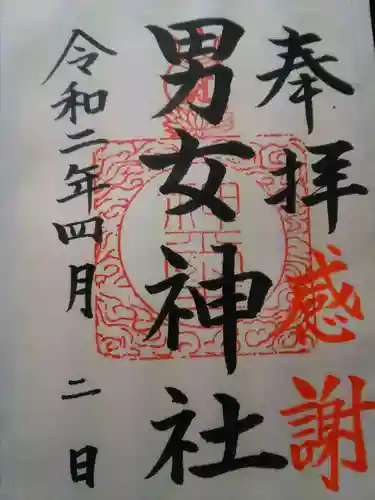 奉拝
感謝
男女神社
令和二年四月二日